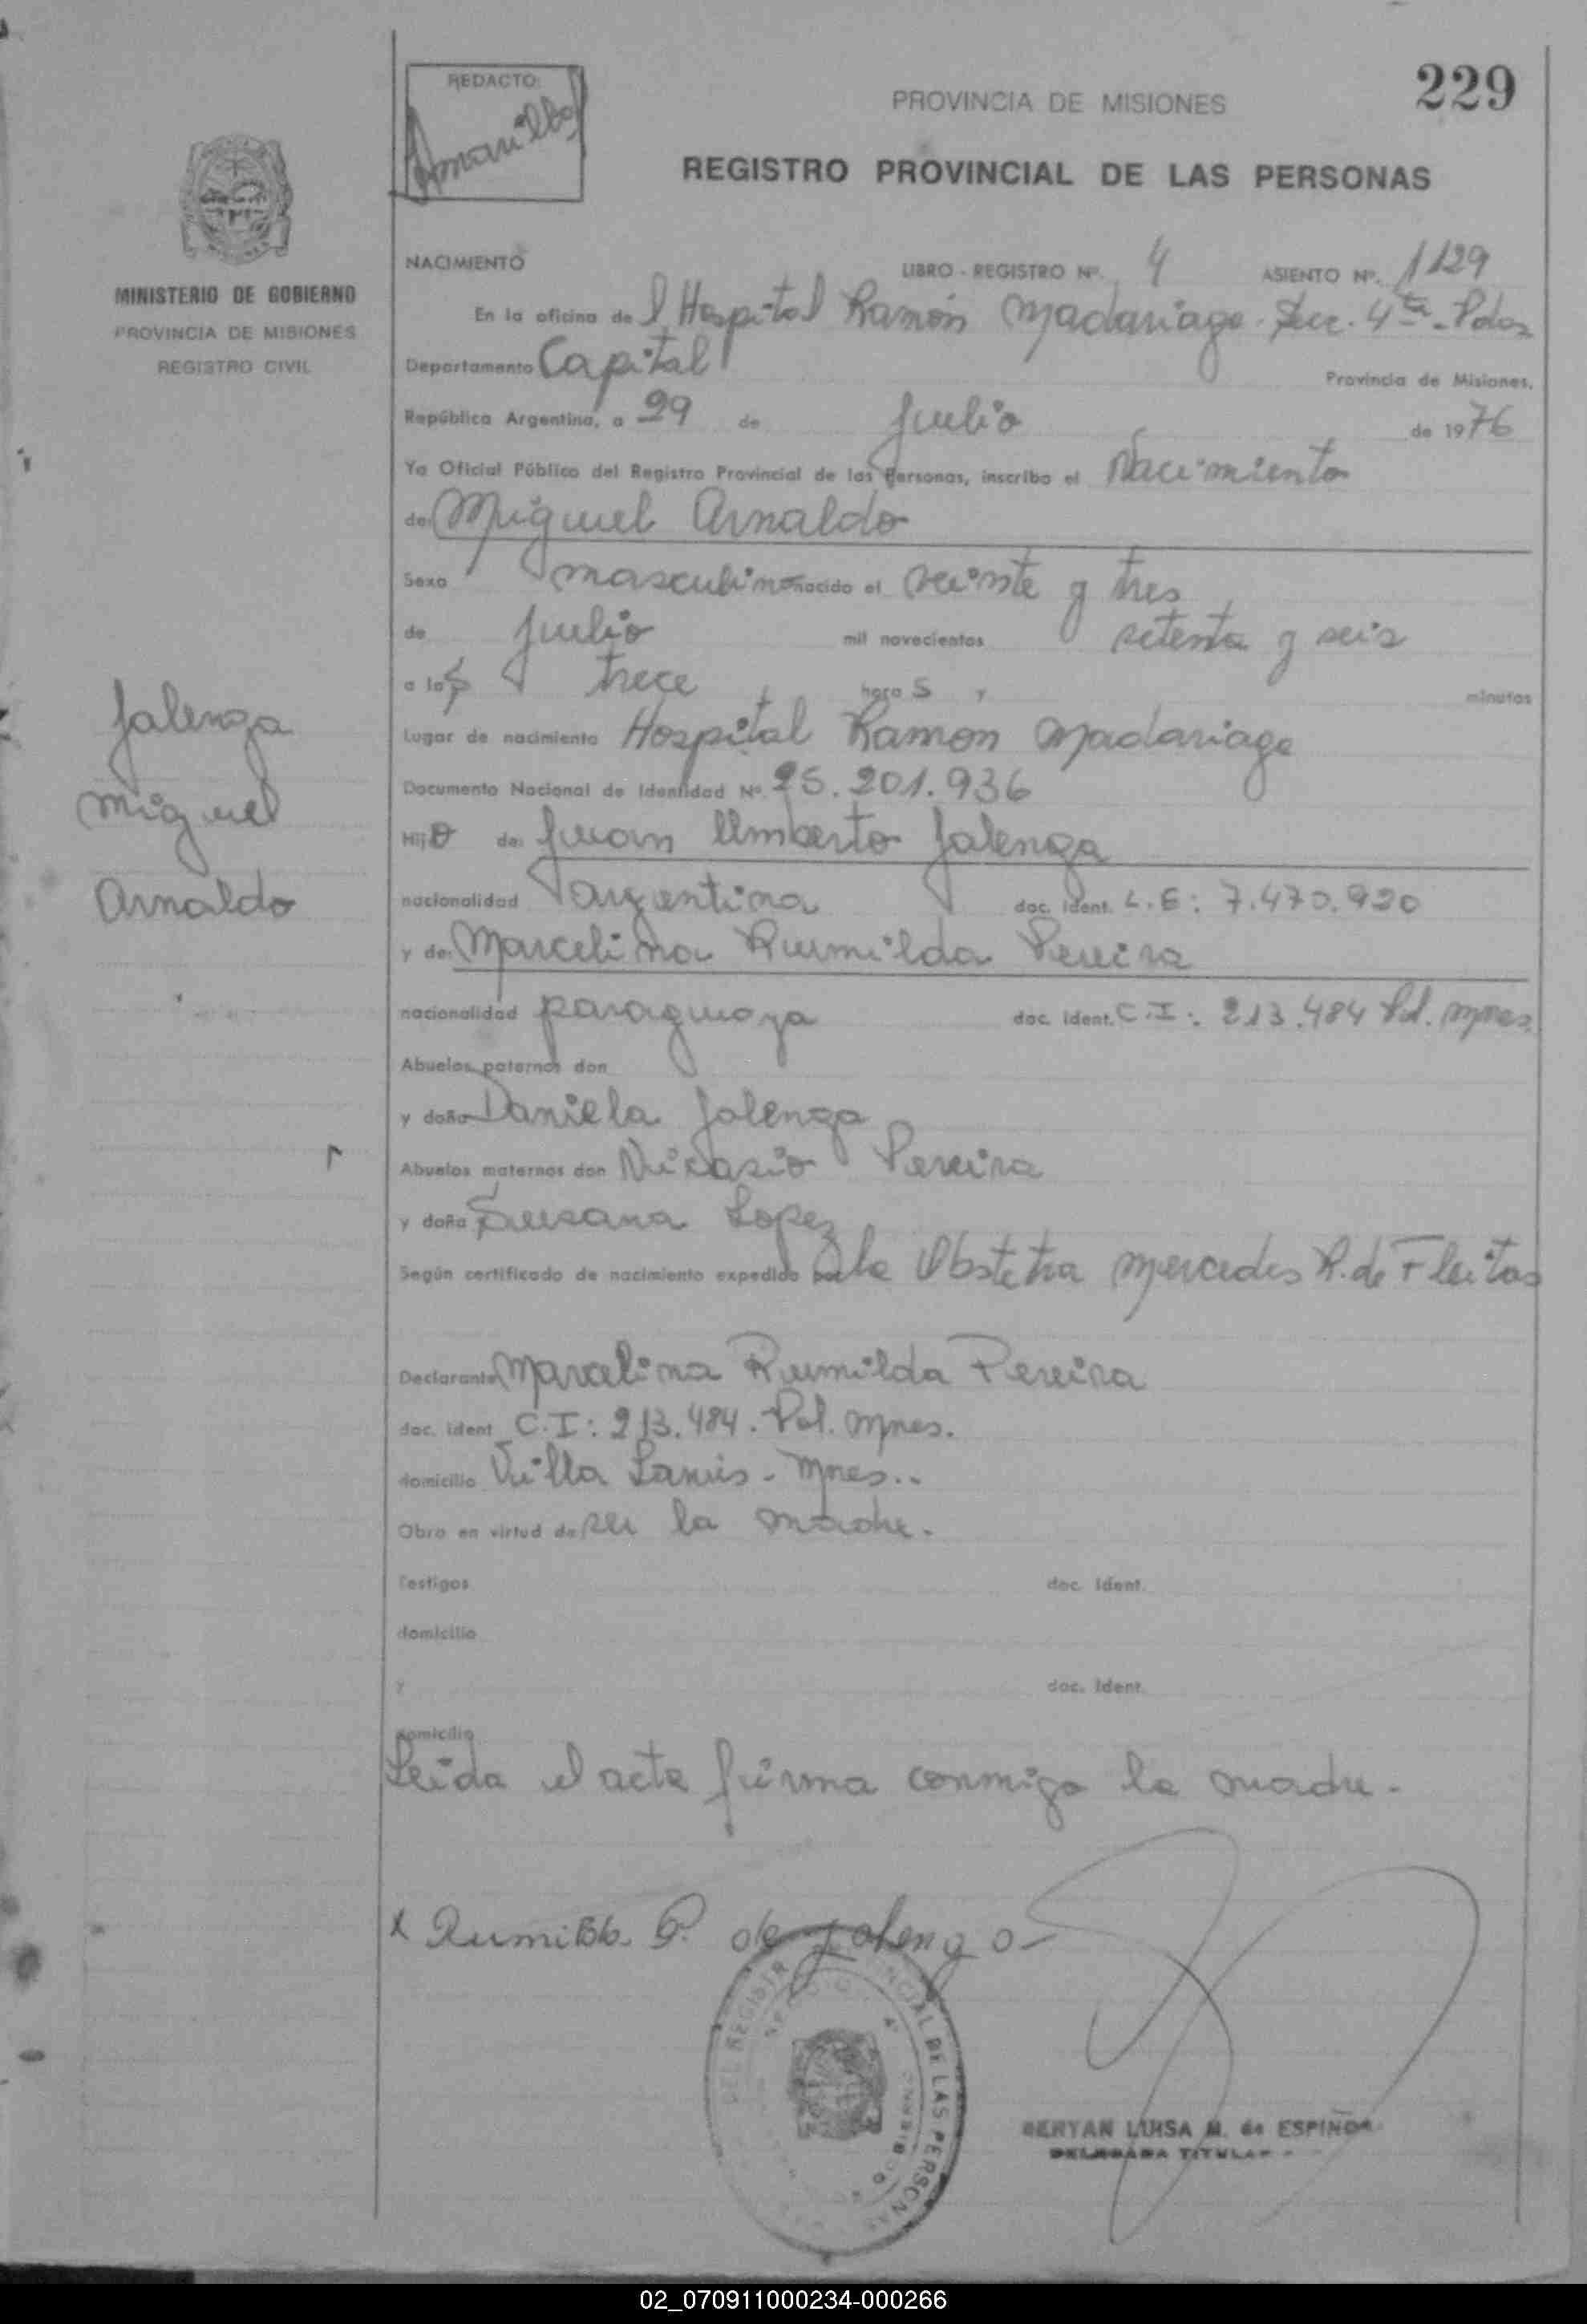 229
REDACTO:
PROVINCIA DE MISIONES
REGISTRO PROVINCIAL DE LAS PERSONAS
MINISTERIO DE GOBIERNO
PROVINCIA DE MISIONES
REGISTRO CIVIL
NACIMIENTO LIBRO - REGISTRO Nº. 4 ASIENTO Nº. 1129
En la oficina del Hospital Ramón Madariaga. Secc. 4ta. Pdas
Departamento Capital Provincia de Misiones,
República Argentina, a 29 de julio de 1976
Yo Oficial Público del Registro Provincial de las Personas, inscribo el Nacimiento
de: Miguel Arnaldo
Sexo masculino nacido el veinte y tres
de julio mil novecientos setenta y seis
a las trece horas y minutos
Lugar de nacimiento Hospital Ramón Madariaga
Documento Nacional de Identidad Nº. 25.201.936
Hijo de: Juan Umberto Jalenga
nacionalidad argentina doc. Ident. L.E: 7.470.920
y de: Marcelina Rumilda Pereira
nacionalidad paraguaya doc. Ident. C.I: 213.484 Pol. Mnes.
Abuelos paternos don
y doña Daniela Jalenga
Abuelos maternos don Nicasio Pereira
y doña Susana Lopez
Según certificado de nacimiento expedido por la Obstetra Mercedes R. de Fleitas
Declarante Marcelina Rumilda Pereira
doc. Ident C.I: 213.484. Pol. Mnes.
domicilio Villa Lanús - Mnes..
Obra en virtud de ser la madre.
Testigos doc. Ident.
domicilio
y doc. Ident.
domicilio
Leida el acta firma conmigo la madre.
Jalenga
Miguel
Arnaldo
x Rumilda P. de Jalenga
DEL REGISTR NCIAL DE LAS PERSONAS
LUISA M. de ESPINOZA
DELEGADA TITULAR
02_070911000234-000266